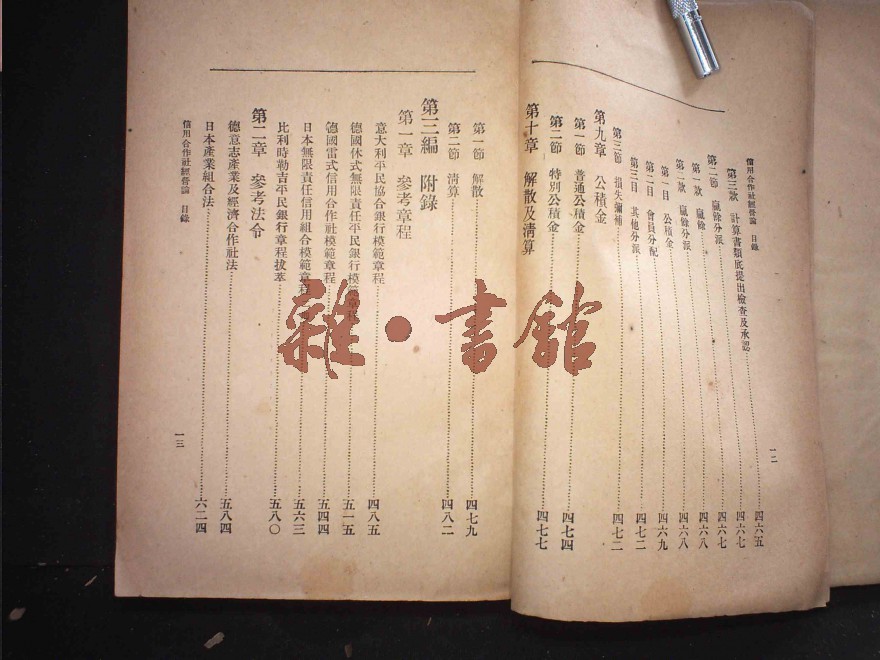 信用合作社經營論 目錄
第三款 計算書類底提出檢查及承認……四六五
第二節 贏餘分派……四六七
第一款 贏餘……四六七
第二款 贏餘分派……四六八
第一目 公積金……四六八
第二目 會員分配……四六九
第三目 其他分派……四七二
第三節 損失彌補……四七二
第九章 公積金
第一節 普通公積金……四七四
第二節 特別公積金……四七七
第十章 解散及清算
一二
第一節 解散……四七九
第二節 清算……四八二
第三編 附錄
第一章 參考章程
意大利平民協合銀行模範章程……四八五
德國休式無限責任平民銀行模範章程……五一五
德國雷式信用合作社模範章程……五四四
日本無限責任信用組合模範章程……五六三
比利時勒吉平民銀行章程拔萃……五八〇
第二章 參考法令
德意志產業及經濟合作社法……五八四
日本產業組合法……六二四
信用合作社經營論 目錄
一三
雜·書館